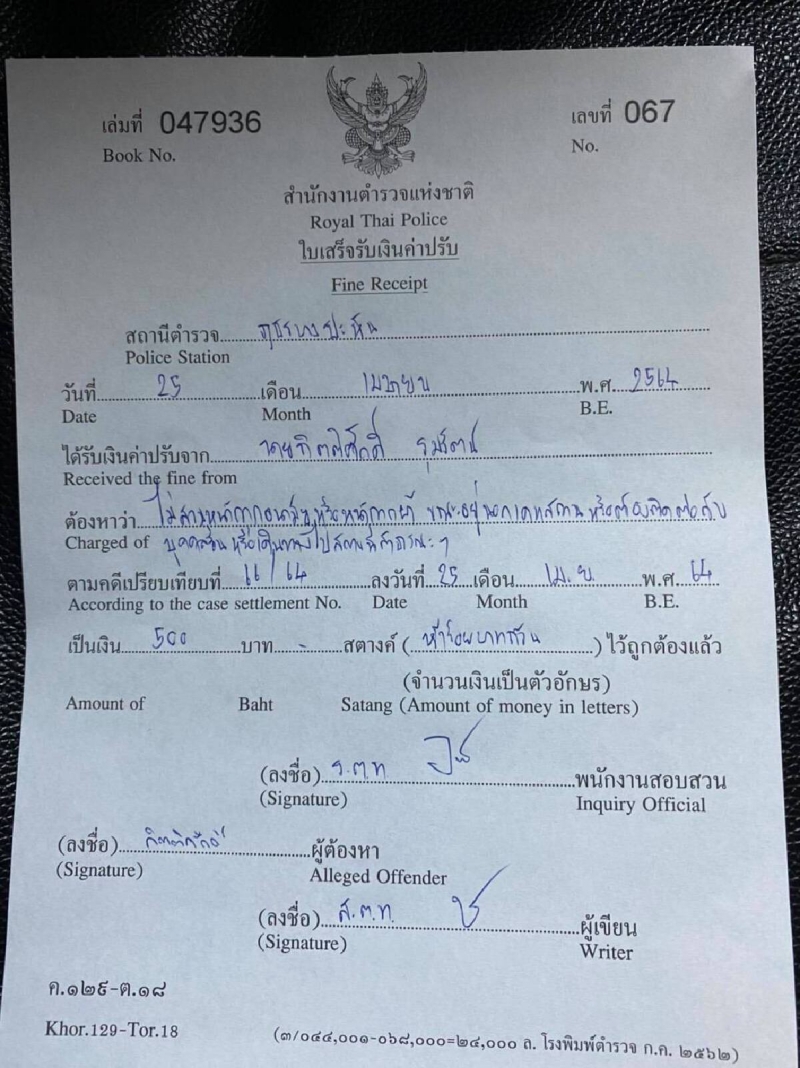 เล่มที่ 047936 เลขที่ 067
Book No. No.
สำนักงานตำรวจแห่งชาติ
Royal Thai Police
ใบเสร็จรับเงินค่าปรับ
Fine Receipt
สถานีตำรวจ
Police Station
วันที่ 25 เดือน เมษายน พ.ศ. 2564
Date Month B.E.
ได้รับเงินค่าปรับจาก
Received the fine from
ต้องหาว่า ไม่สวมหน้ากากอนามัยหรือหน้ากากผ้า ขณะอยู่นอกเคหสถาน หรือต้องติดต่อกับ
Charged of บุคคลอื่น หรือเดินทางไปสถานที่สาธารณะ ๆ
ตามคดีเปรียบเทียบที่ 66/64 ลงวันที่ 25 เดือน เม.ย. พ.ศ. 64
According to the case settlement No. Date Month B.E.
เป็นเงิน 500 บาท - สตางค์ (ห้าร้อยบาทถ้วน) ไว้ถูกต้องแล้ว
(จำนวนเงินเป็นตัวอักษร)
Amount of Baht Satang (Amount of money in letters)
(ลงชื่อ) ร.ต.ท. พนักงานสอบสวน
(Signature) Inquiry Official
(ลงชื่อ) กิตติศักดิ์ ผู้ต้องหา
(Signature) Alleged Offender
(ลงชื่อ) ส.ต.ท. ผู้เขียน
(Signature) Writer
ค.๑๒๙-ต.๑๘
Khor.129-Tor.18 (๓/๐๔๔,๐๐๑-๐๖๘,๐๐๐=๒๔,๐๐๐ ล. โรงพิมพ์ตำรวจ ก.ค. ๒๕๖๒)